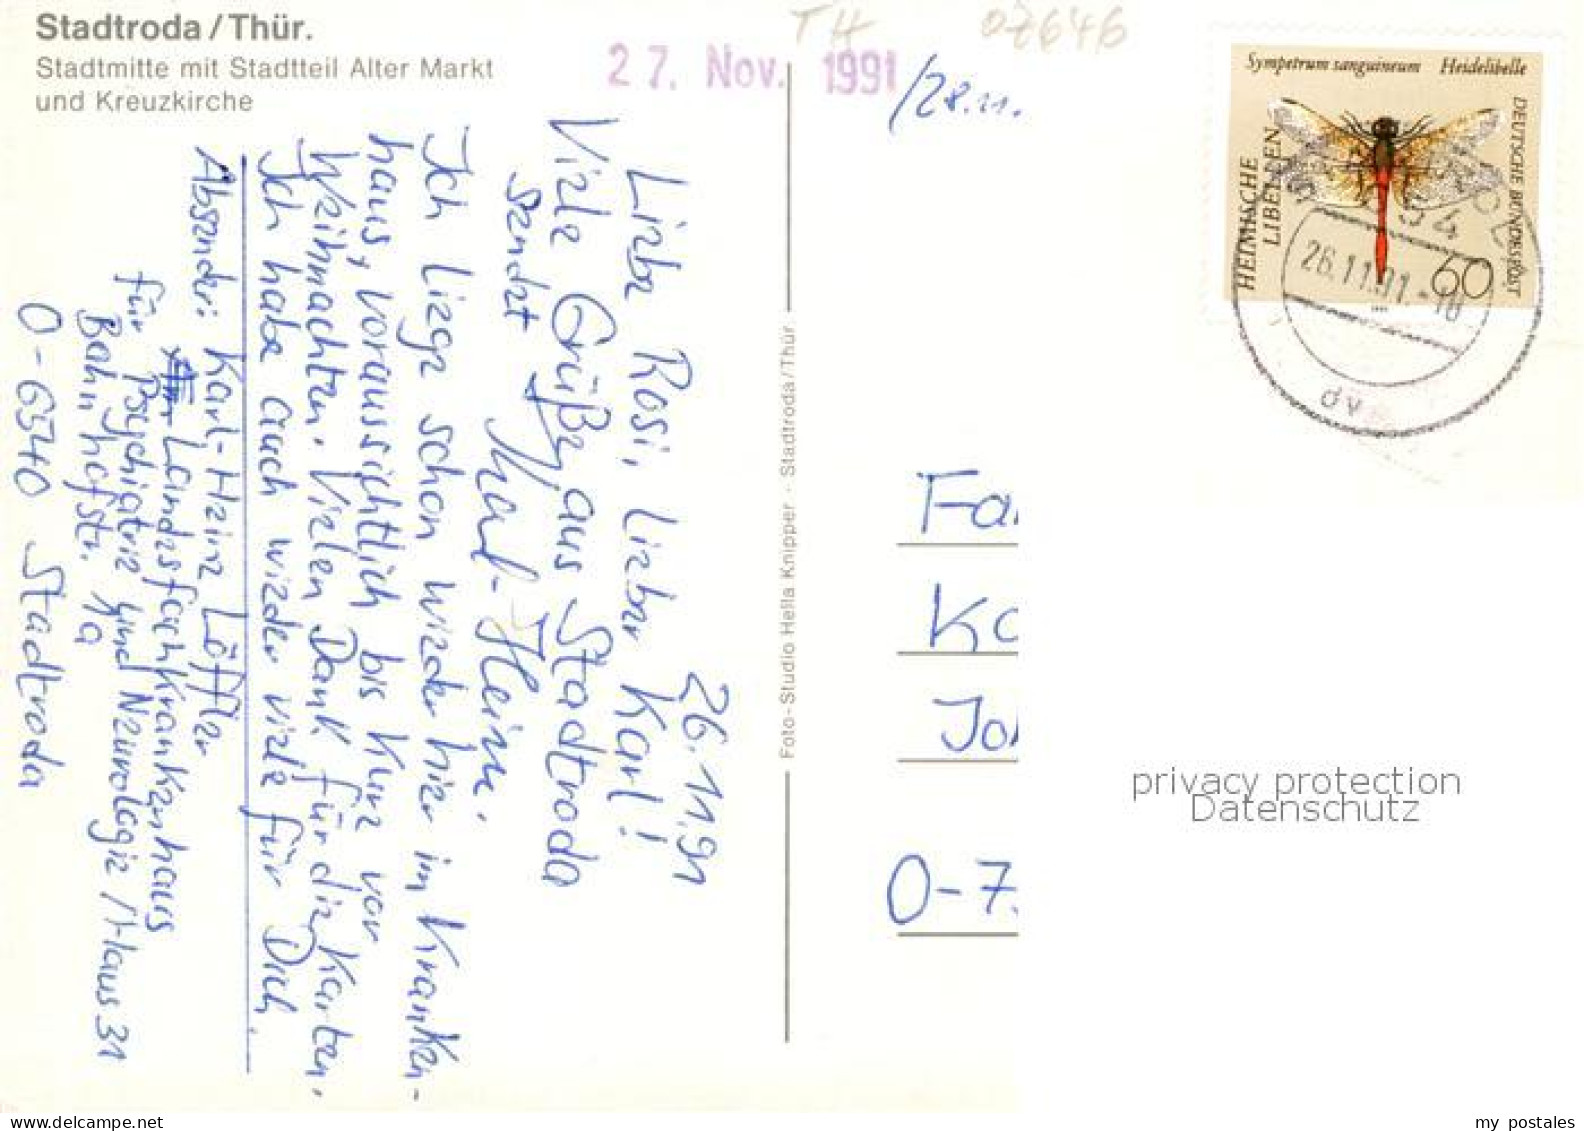 Stadtroda / Thür.
Stadtmitte mit Stadtteil Alter Markt
und Kreuzkirche
27. Nov. 1991
/28.11.
TH
07646
Sympetrum sanguineum Heidelibelle
HEIMISCHE
LIBELLEN
DEUTSCHE BUNDESPOST
60
26.11.91-18
26.11.91
Liebe Rosi, lieber Karl!
Viele Grüße aus Stadtroda
sendet Karl-Heinz.
Ich liege schon wieder hier im Kranken-
haus, voraussichtlich bis kurz vor
Weihnachten. Vielen Dank für die Karten.
Ich habe auch wieder viele für Dich.
Absender: Karl-Heinz Löffler
Landesfachkrankenhaus
für Psychiatrie und Neurologie / Haus 31
Bahnhofstr. 1a
O-6540 Stadtroda
Foto-Studio Hella Knipper · Stadtroda/Thür
Fa
Ko
Jo
O-7.
privacy protection
Datenschutz
www.delcampe.net
my postales